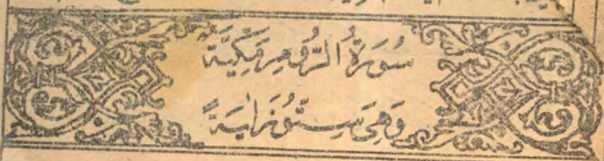 سُورَةُ الرُّومِ مَكِّيَّةٌ
وَهِيَ سِتُّونَ اٰيَةً